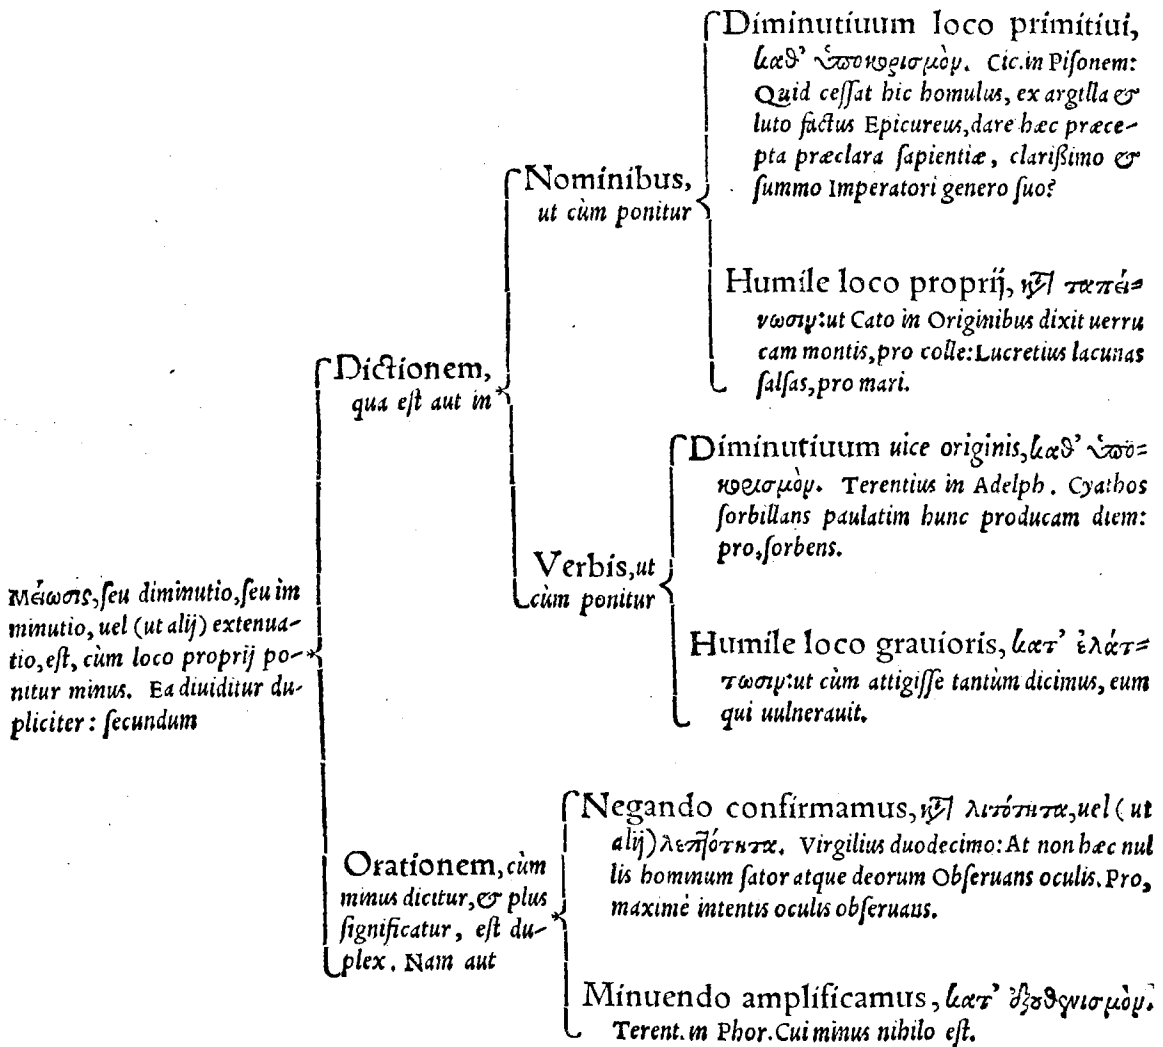 Μείωσις, ſeu diminutio, ſeu im
minutio, uel (ut alij) extenua-
tio, eſt, cùm loco proprij po-
nitur minus. Ea diuiditur du-
pliciter: ſecundum
Dictionem,
qua eſt aut in
Nominibus,
ut cùm ponitur
Diminutiuum loco primitiui,
καθ’ ὑποκορισμὸν. Cic. in Piſonem:
Quid ceſſat hic homulus, ex argilla &
luto factus Epicureus, dare hæc præce-
pta præclara ſapientiæ, clarißimo &
ſummo Imperatori genero ſuo?
Humile loco proprij, κατὰ ταπεί=
νωσιν: ut Cato in Originibus dixit uerru
cam montis, pro colle: Lucretius lacunas
ſalſas, pro mari.
Verbis, ut
cùm ponitur
Diminutiuum uice originis, καθ’ ὑπο=
κορισμὸν. Terentius in Adelph. Cyathos
ſorbillans paulatim hunc producam diem:
pro, ſorbens.
Humile loco grauioris, κατ’ ἐλάτ=
τωσιν: ut cùm attigiſſe tantùm dicimus, eum
qui uulnerauit.
Orationem, cùm
minus dicitur, & plus
ſignificatur, eſt du-
plex. Nam aut
Negando confirmamus, κατὰ λιτότητα, uel (ut
alij) λεπτότητα. Virgilius duodecimo: At non hæc nul
lis hominum ſator atque deorum Obſeruans oculis. Pro,
maximè intentis oculis obſeruans.
Minuendo amplificamus, κατ’ ἐξουθενισμὸν.
Terent. in Phor. Cui minus nihilo eſt.